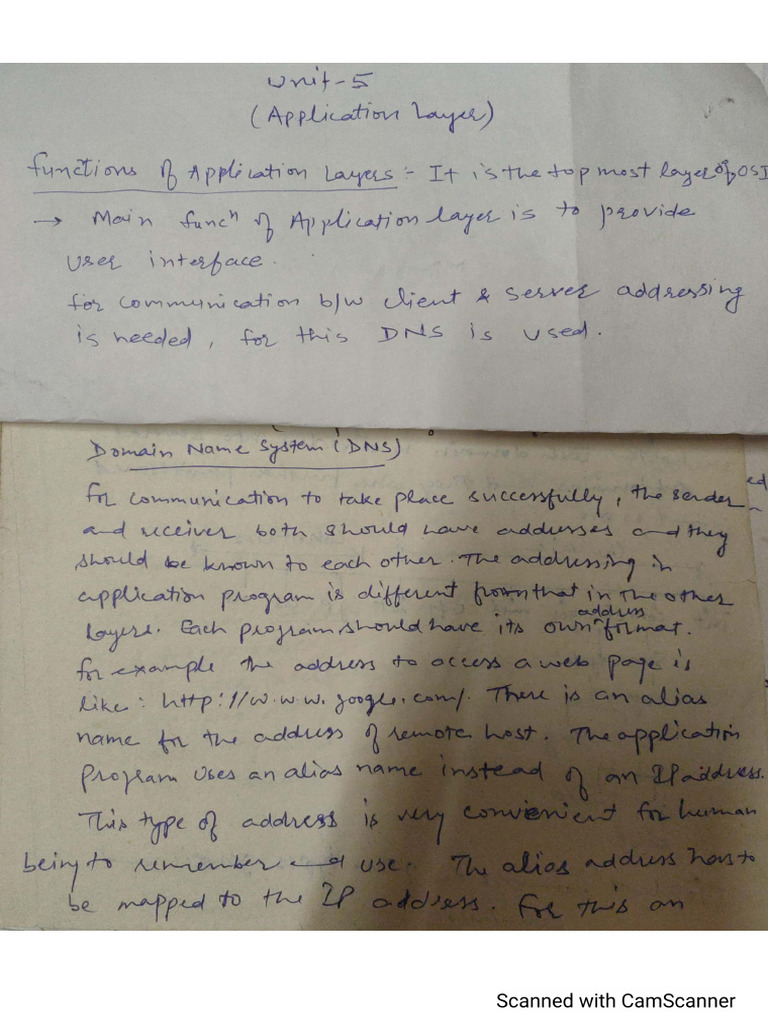 Unit-5
(Application Layer)
Functions of Application Layers :- It is the top most layer of OSI
→ Main funcⁿ of Application layer is to provide
user interface.
for communication b/w client & server addressing
is needed, for this DNS is used.
Domain Name System (DNS)
for communication to take place successfully, the sender
and receiver both should have addresses and they
should be known to each other. The addressing in
application program is different from that in the other
layers. Each program should have its own address format.
for example the address to access a web page is
like : http://w.w.w.google.com/. There is an alias
name for the address of remote host. The application
program uses an alias name instead of an IP address.
This type of address is very convienent for human
being to remember and use. The alias address has to
be mapped to the IP address. For this an
Scanned with CamScanner